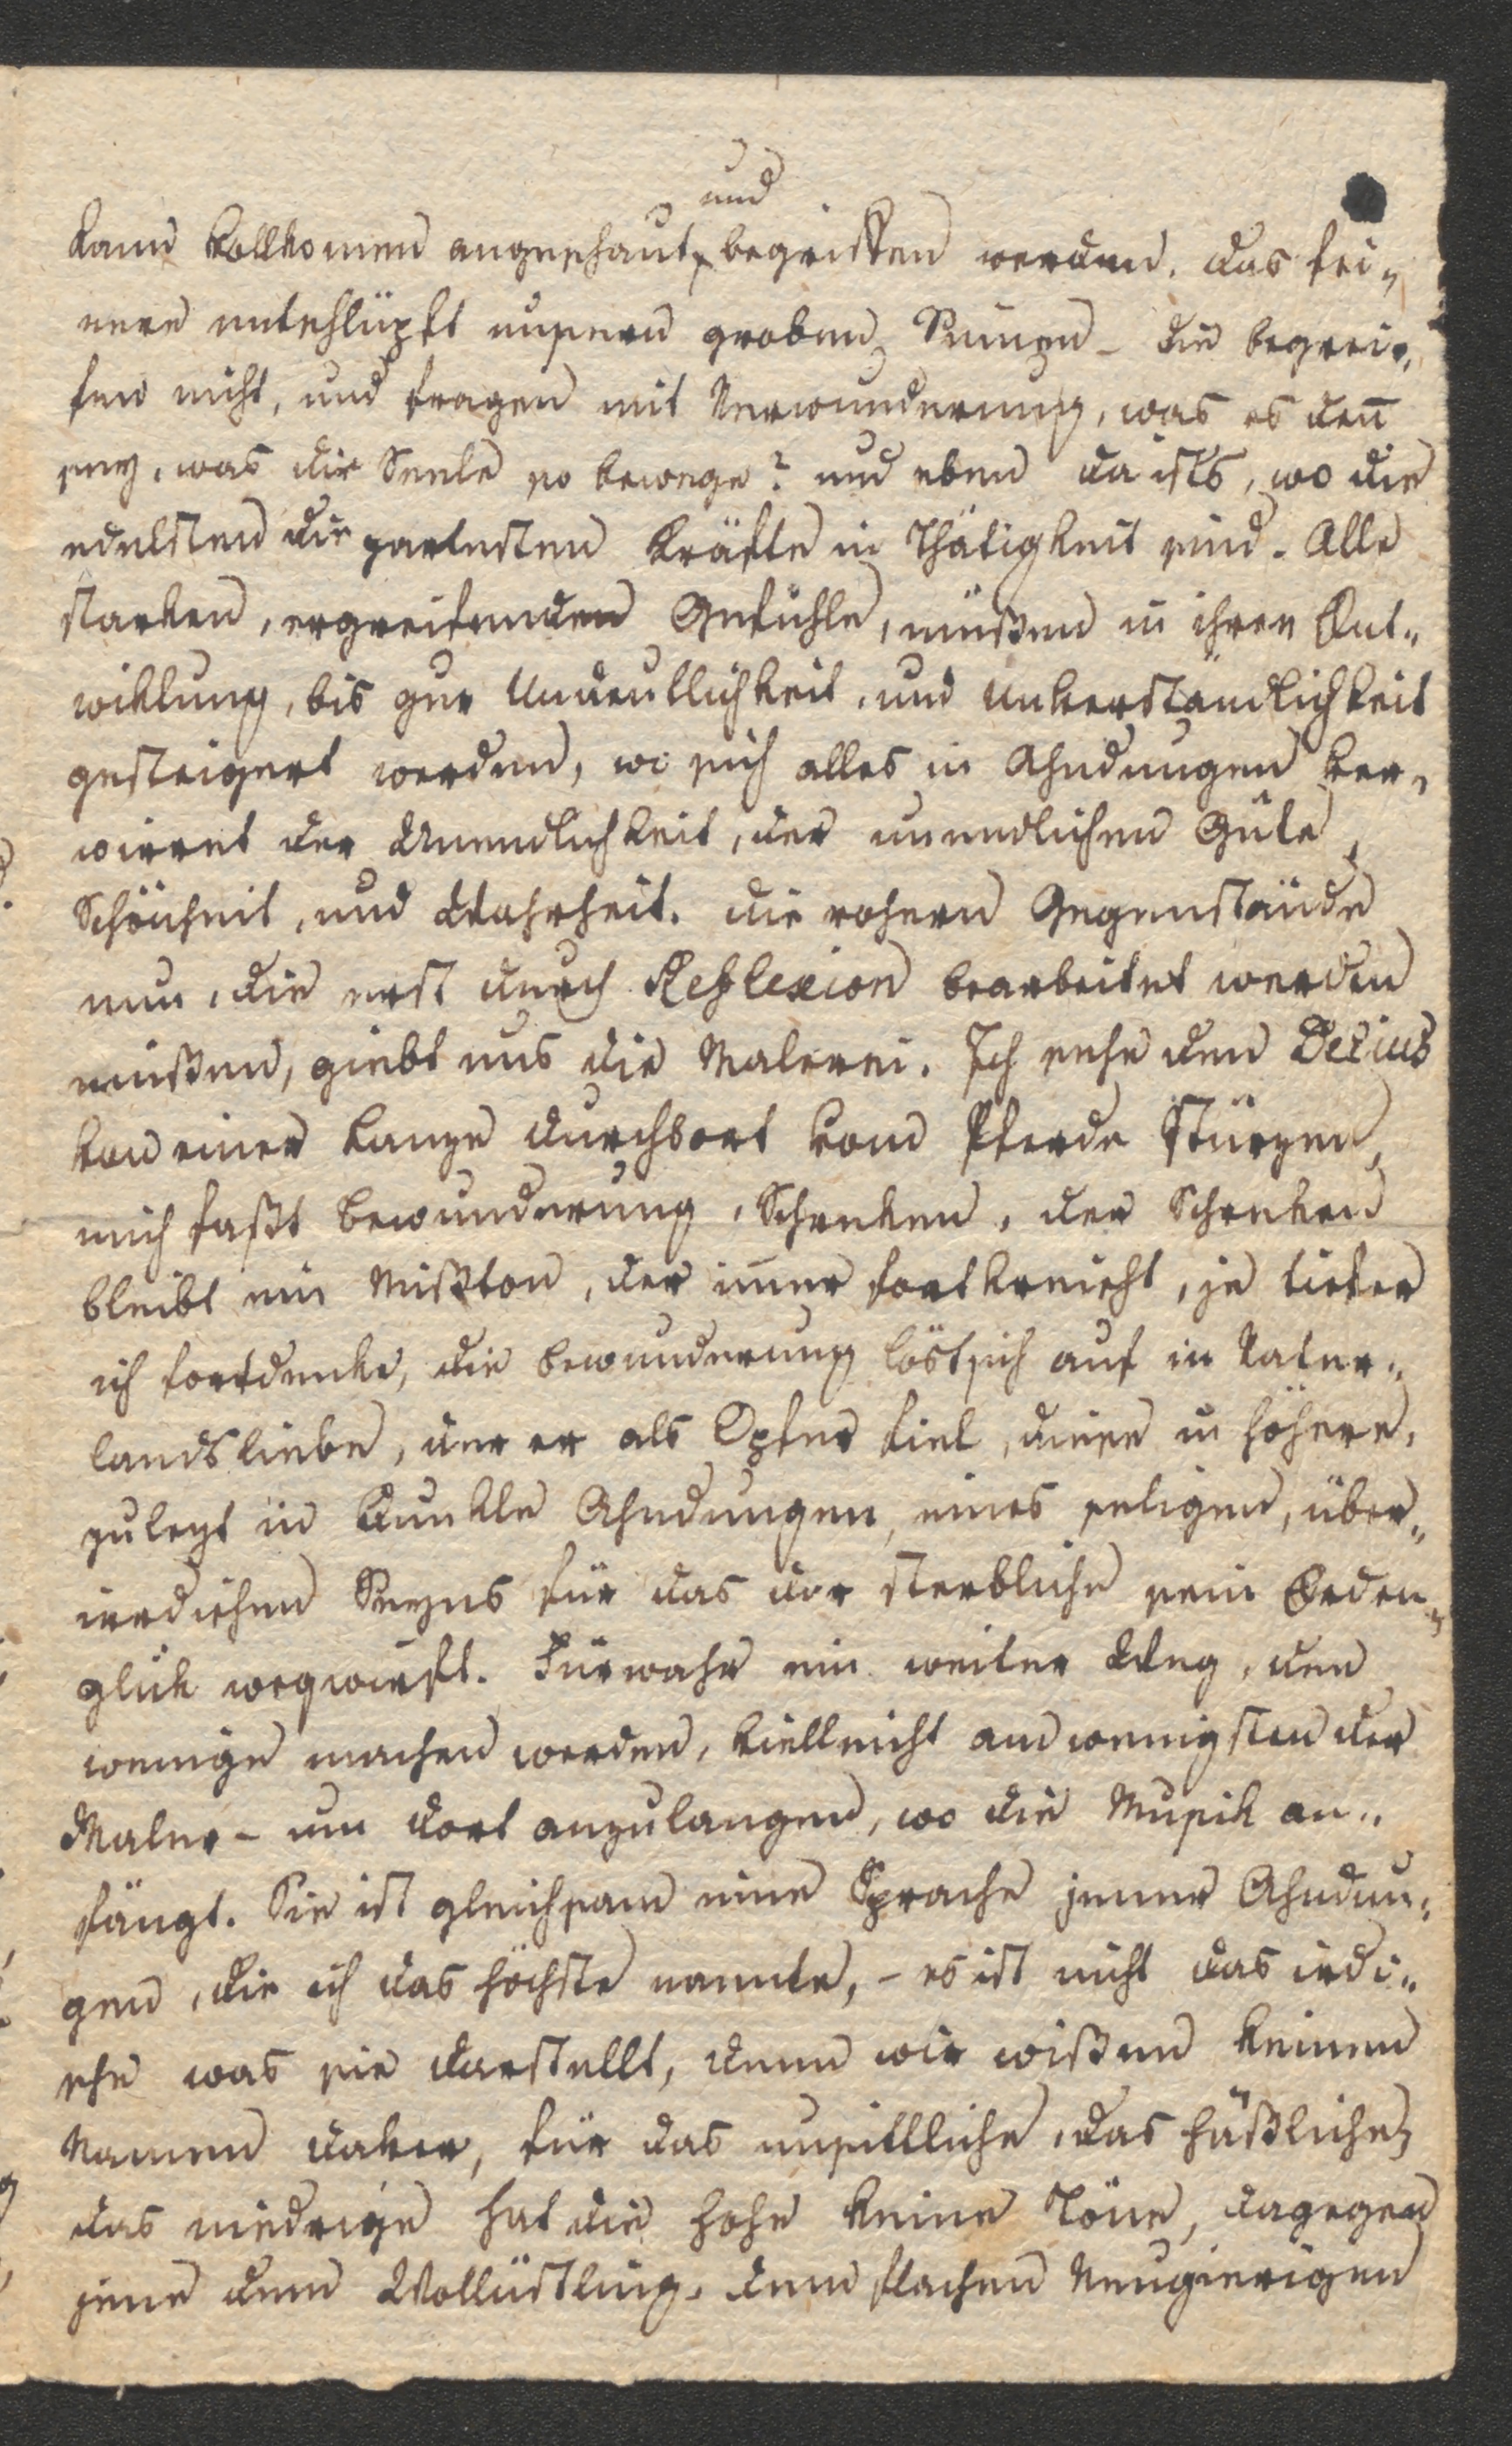 und
kann vollkomen angeschaut, begriffen werden. das fei„
nere entschlüpft unsern groben Sinnen – die begrei„
fen nicht, und fragen mit Verwunderung, was es deñ
sey, was die Seele so bewege? und eben da ists, wo die
edelsten die zartesten Kräfte in Thätigkeit sind. Alle
starken, ergreifenden Gefühle, müßen in ihrer Ent„
wiklung, bis zur Undeutlichkeit, und Unverständlichkeit
gesteigert werden, wo sich alles in Ahndungen ver„
wirret der Unendlichkeit, der unendlichen Güte,
Schönheit, und Wahrheit. die rohern Gegenstände
nun, die erst durch Reflexion bearbeitet werden
müßen, giebt uns die Malerei. Ich sehe den Decius
von einer Lanze durchbort vom Pferde stürzen,
mich faßt Bewunderung, Schreken, der Schreken
bleibt ein Mißton, der im̄er fortkreischt, je tiefer
ich fortdenke, die Bewunderung löst sich auf in Vater„
landsliebe, der er als Opfer fiel, diese in höhere,
zulezt in dunkle Ahndungen, eines seligen, über„
irrdischen Seyns für das der sterbliche sein Erden„
glük wegwirft. Fürwahr ein weiter Weg, den
wenige machen werden, vielleicht am wenigsten der
Maler – um dort anzulangen, wo die Musik an„
fängt. Sie ist gleichsam eine Sprache jener Ahndun„
gen, die ich das höchste nannte, – es ist nicht das irdi„
sche was sie darstellt, denn wir wißen keinen
Namen dafür, für das unsittliche, das häßliche,
das niedrige hat die hohe keine Töne, dagegen
jene dem Wollüstling, dem flachen Neugierigen